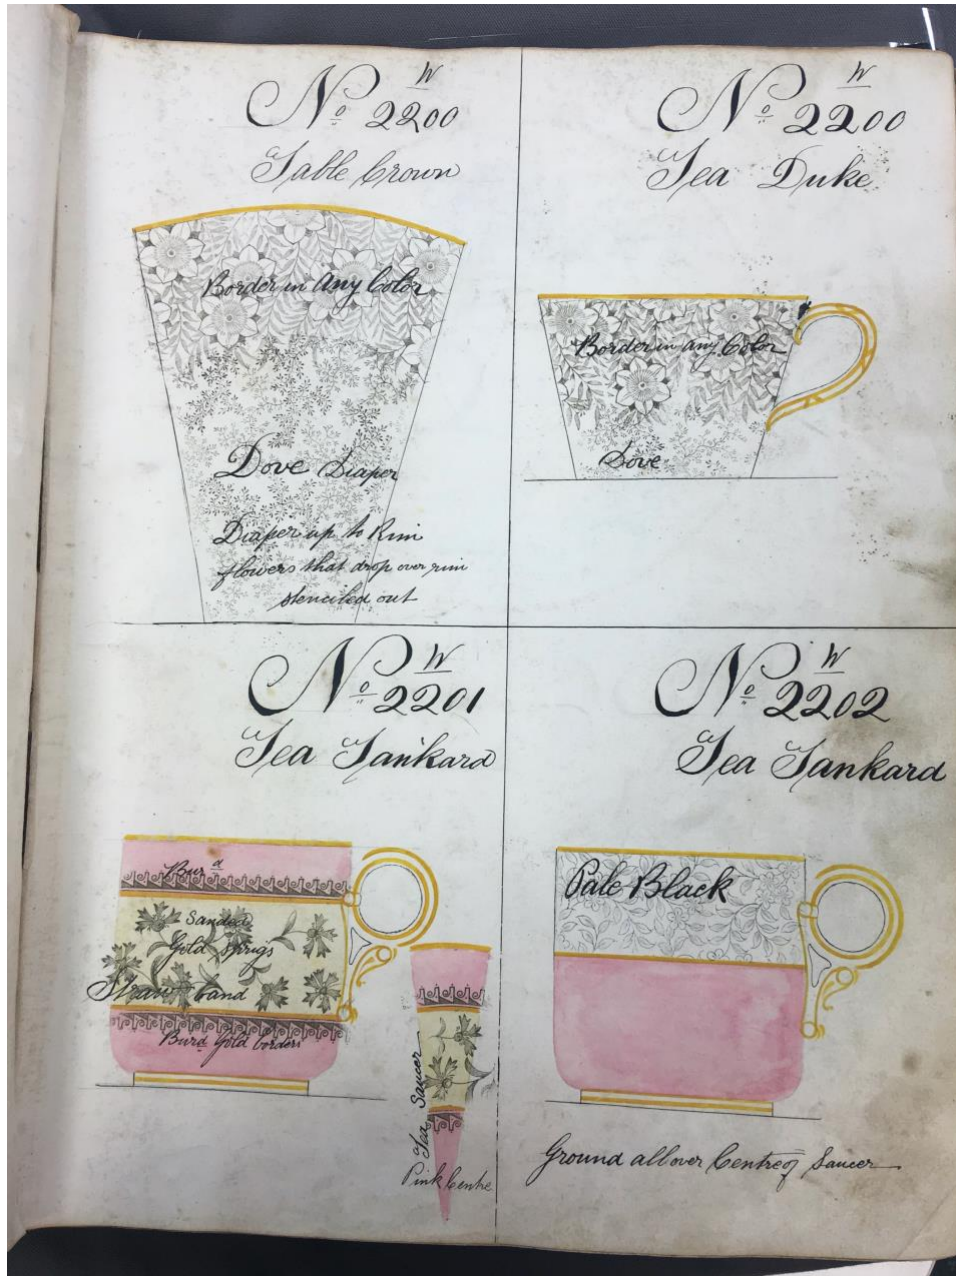 W
No 2200
Table Crown
Border in Any Color
Dove Diaper
Diaper up to Rim
flowers that drop over rim
stenciled out
W
No 2200
Tea Duke
Border in any Color
Dove
W
No 2201
Tea Tankard
Burd
Sanded
Gold Sprigs
Straw band
Burd Gold border
Tea Saucer
Pink Centre
W
No 2202
Tea Tankard
Pale Black
Ground all over Centre of Saucer